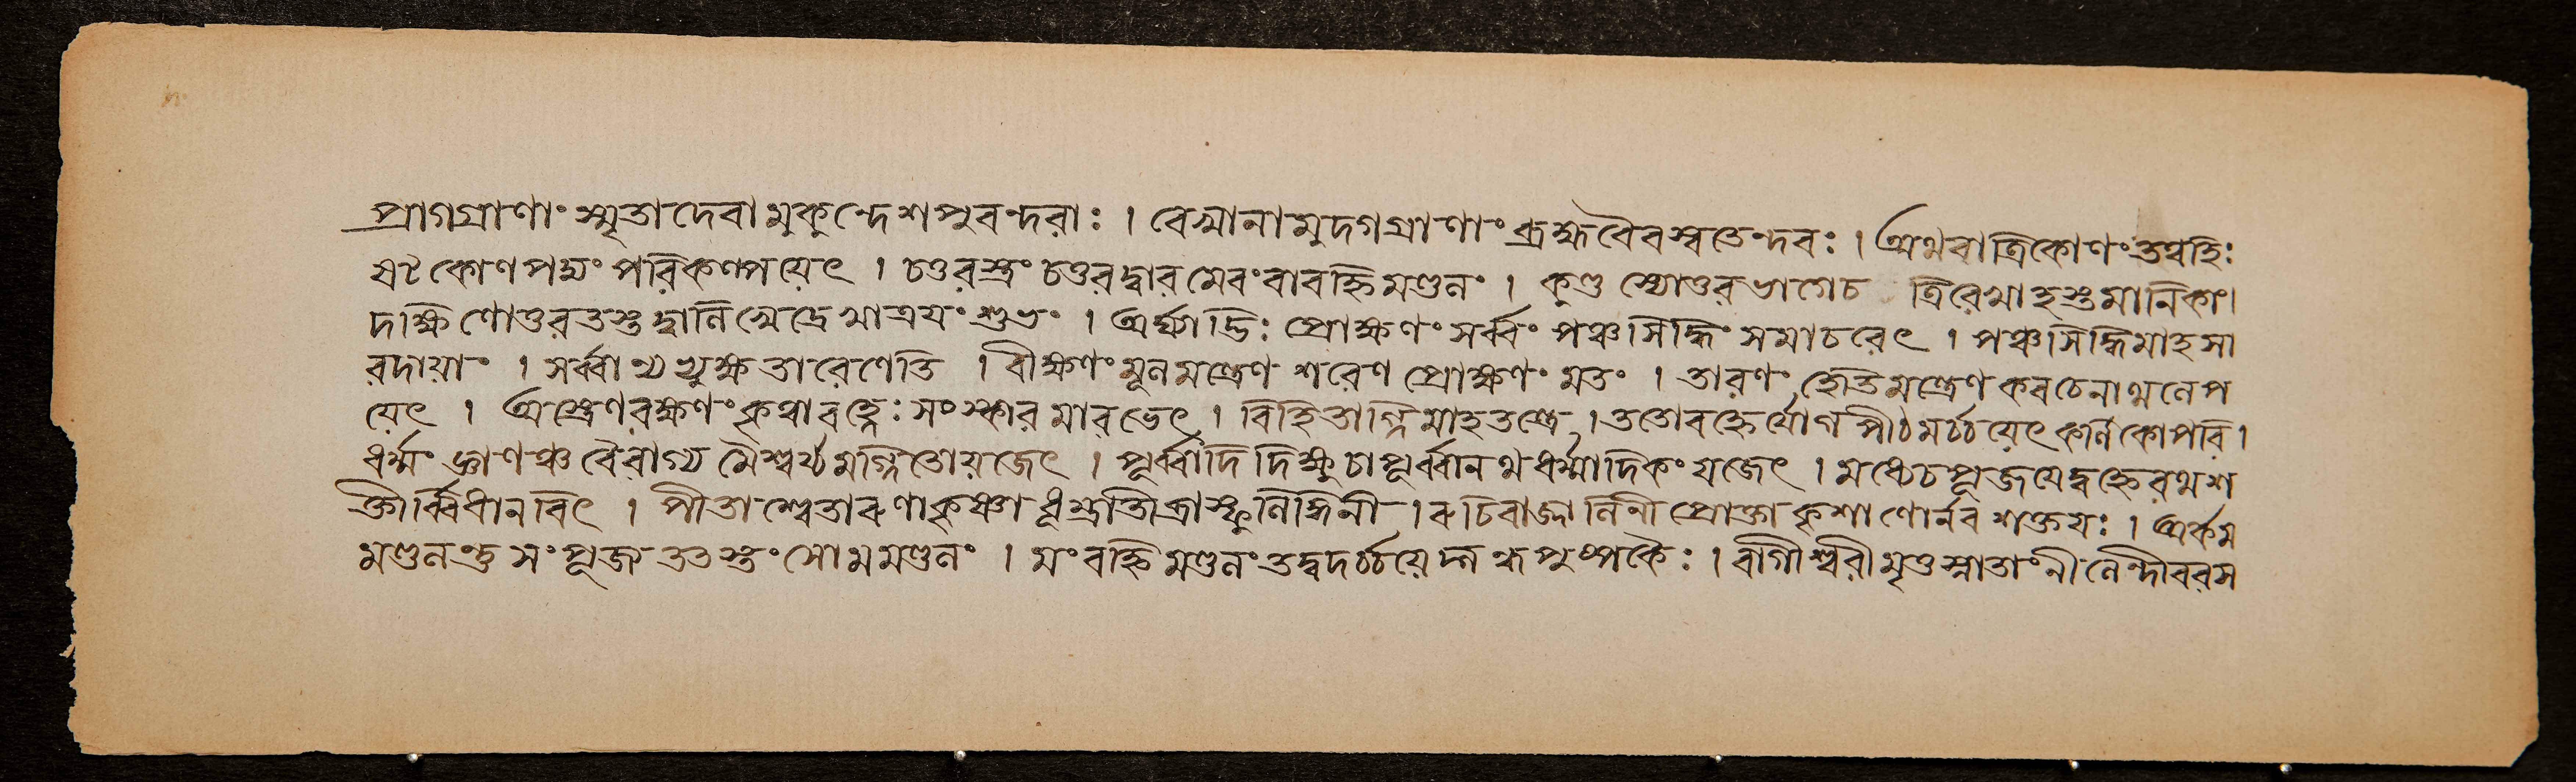 প্রাগগ্রাণাং স্মৃতা দেবা মুকুন্দেশপুবন্দরাঃ । বেখানামুদগগ্রাণাং ব্রহ্মবৈবস্বতেন্দবঃ । অথবা ত্রিকোণং তদ্বহিঃ
ষট্কোণপদ্মং পরিকল্পয়েৎ । চতুরস্ত্রং চতুরদ্বারমেবং বাবহ্নিমণ্ডলং । কুণ্ডস্যোত্তরভাগেচ ত্রিরেখাহস্তমানিকাং।
দক্ষিণোত্তরতস্তদ্বানিখেদ্রেখাত্রয়ং শুভং । অর্ঘ্যাদ্ভিঃ প্রোক্ষণং সর্ব্বং পঞ্চসিদ্ধিং সমাচরেৎ । পঞ্চসিদ্ধিমাহ সা
রদায়াং । সর্ব্বাণ্যভ্যুক্ষ তারেণেতি । বীক্ষণং মূলমন্ত্রেণ শরেণ প্রোক্ষণং মতং । তারণং তেনমন্ত্রেণ কবচেনাথ লেপ
য়েৎ । অস্ত্রেণ রক্ষণং কৃত্বা বহ্নেঃ সংস্কারমারভেৎ । বিহিতাগ্নিমাহ তন্ত্রে । ততো বহ্নের্যোগপীঠমর্চ্চয়েৎ কর্ণিকোপরি ।
ধর্ম্মং জ্ঞাণঞ্চ বৈরাগ্যমৈশ্বর্য্যমগ্নিতোয়জেৎ । পূর্ব্বাদি দিক্ষু চাপূর্ব্বানথধর্ম্মাদিকং যজেৎ । মধ্যেচ পূজয়েদ্বহ্নেরথ শ
ক্তীর্ব্বিধানবিৎ । পীতা শ্বেতারুণা কৃষ্ণা ধূম্রা তীব্রা স্ফুলিঙ্গিনী । রুচিবাজ্জালিনী প্রোক্তা কৃশাণোর্নব শক্তয়ঃ । অর্কম
মণ্ডলন্তু সংপূজ্য ততস্তং সোমমণ্ডলং । মং বহ্নিমণ্ডলং তদ্বদর্চ্চয়েদ্গন্ধপুষ্পকৈঃ । বাগীশ্বরীমৃতুস্নাতাং নীলেন্দীবরস